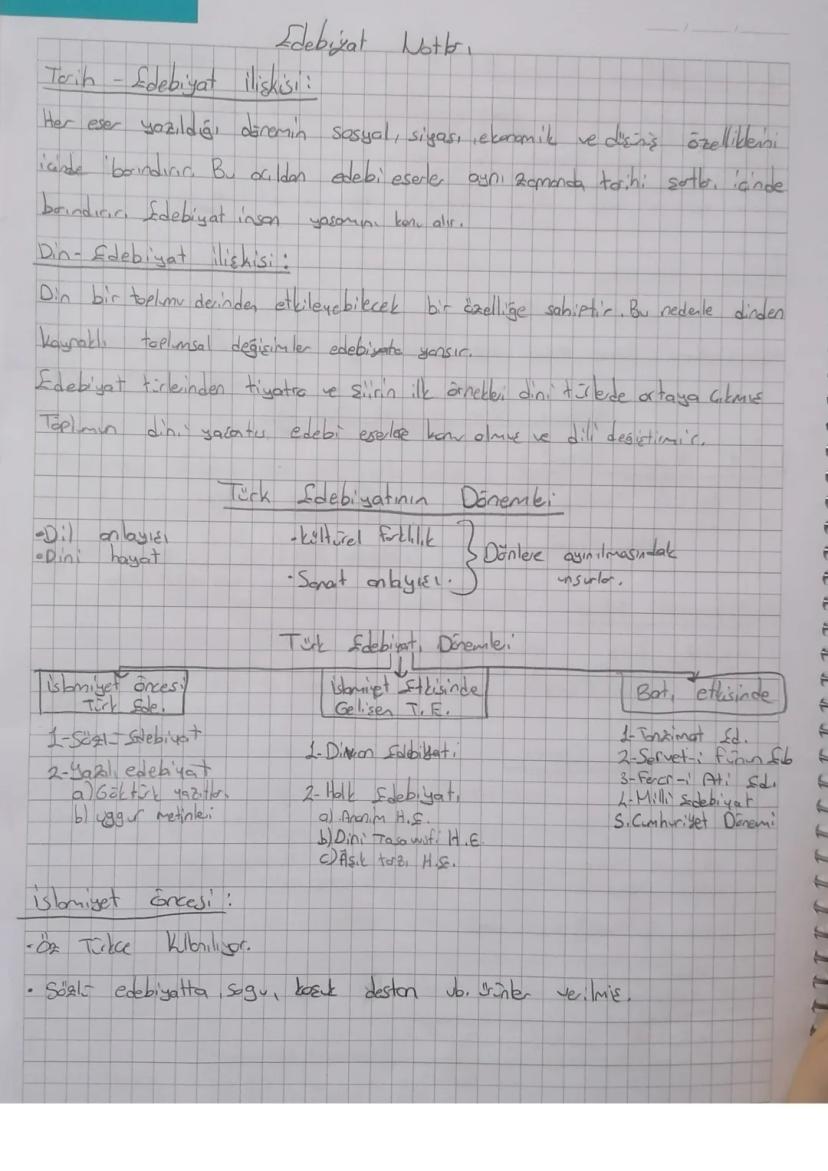 Edebiyat Notları
Tarih - Edebiyat ilişkisi:
Her eser yazıldığı dönemin sosyal, siyasi, ekonomik ve özelliklerini
içinde barındırır. Bu açıdan edebi eserler aynı zamanda tarihi içinde
barındırır. Edebiyat insan yaşamını konu alır.
Din - Edebiyat ilişkisi:
Din bir toplumu derinden etkileyebilecek bir özelliğe sahiptir. Bu nedenle dinden
kaynaklı toplumsal değişimler edebiyata yansır.
Edebiyat türlerinden tiyatro ve şiirin ilk örnekleri dini türlerde ortaya çıkmış
Toplumun dini yaşantısı edebi eserlere konu olmuş ve dili değiştirmiş.
Türk Edebiyatının Dönemleri
•Dil anlayışı
•Dini hayat
•Kültürel farklılık
•Sanat anlayışı.
Dönlere ayırılmasındaki
unsurlar.
Türk Edebiyatı Dönemleri
İslamiyet öncesi
Türk Ede.
1-Sözlü Edebiyat
2-Yazılı edebiyat
a)Göktürk yazıtları
b) uygur metinleri
İslamiyet Etkisinde
Gelişen T.E.
1-Divan Edebiyatı
2-Halk Edebiyatı
a) Anonim H.E.
b)Dini Tasavvufi H.E.
c)Aşık tarzı H.E.
Batı etkisinde
1-Tanzimat Ed.
2-Servet-i Fünun Eb
3-Fecr-i Ati Ed.
4-Milli edebiyat
5.Cumhuriyet Dönemi
İslamiyet öncesi:
•Öz Türkçe Kullanılıyor.
• Sözlü edebiyatta, sagu, koşuk destan vb. ürünler verilmiş.